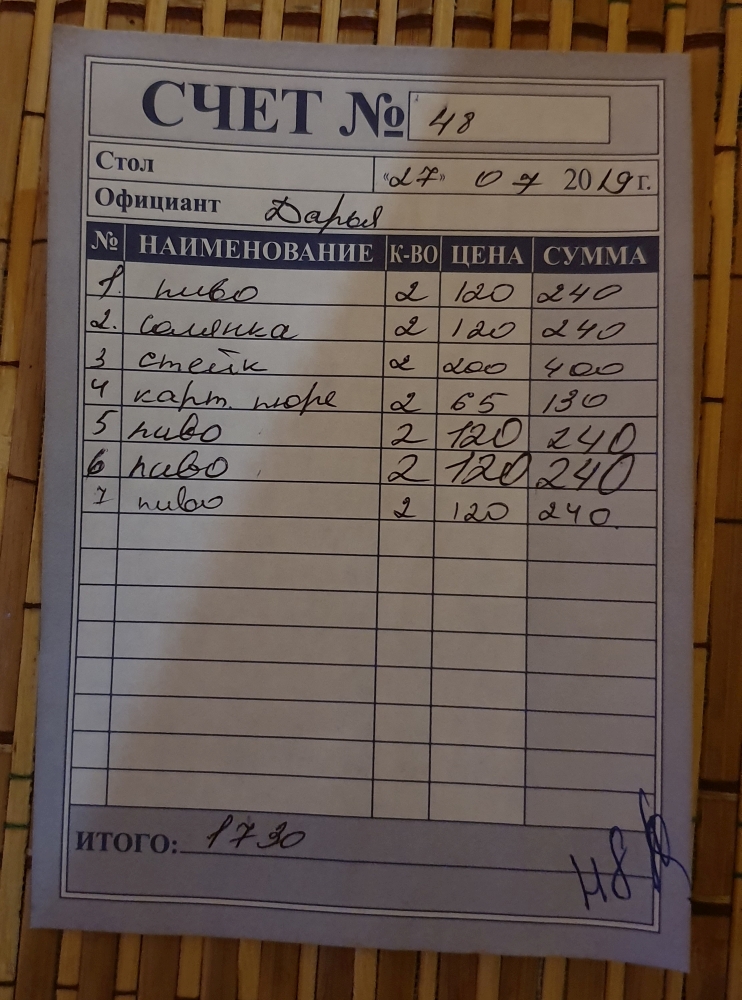 СЧЕТ № 48
Стол «27» 07 2019 г.
Официант Дарья
№ НАИМЕНОВАНИЕ К-ВО ЦЕНА СУММА
1. пиво 2 120 240
2. солянка 2 120 240
3 стейк 2 200 400
4 карт. пюре 2 65 130
5 пиво 2 120 240
6 пиво 2 120 240
7 пиво 2 120 240
ИТОГО: 1730
48